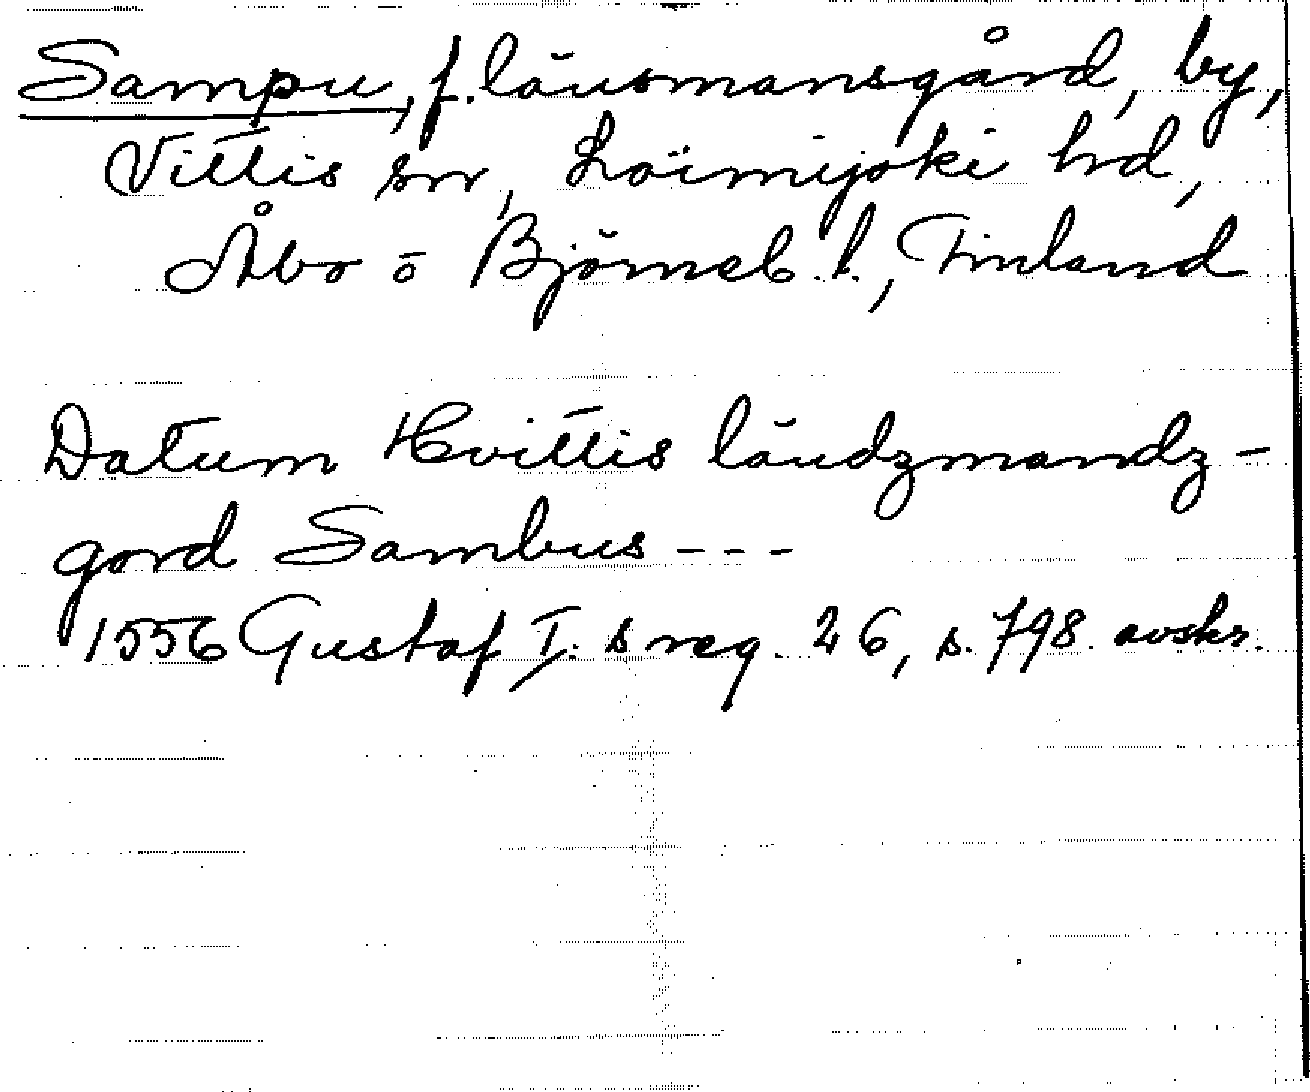 Sampu, f. länsmansgård, by,
Vittis sn, Loimijoki hd,
Åbo o Björneb. l., Finland
Datum Hvittisländzmandz-
gord Sambus ---
1556 Gustaf I:s reg. 26, s. 798. avskr.